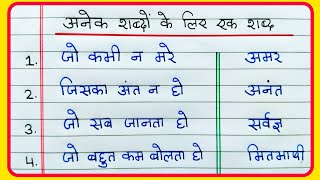 अनेक शब्दों के लिए एक शब्द
1. जो कभी न मरे अमर
2. जिसका अंत न हो अनंत
3. जो सब जानता हो सर्वज्ञ
4. जो बहुत कम बोलता हो मितभाषी